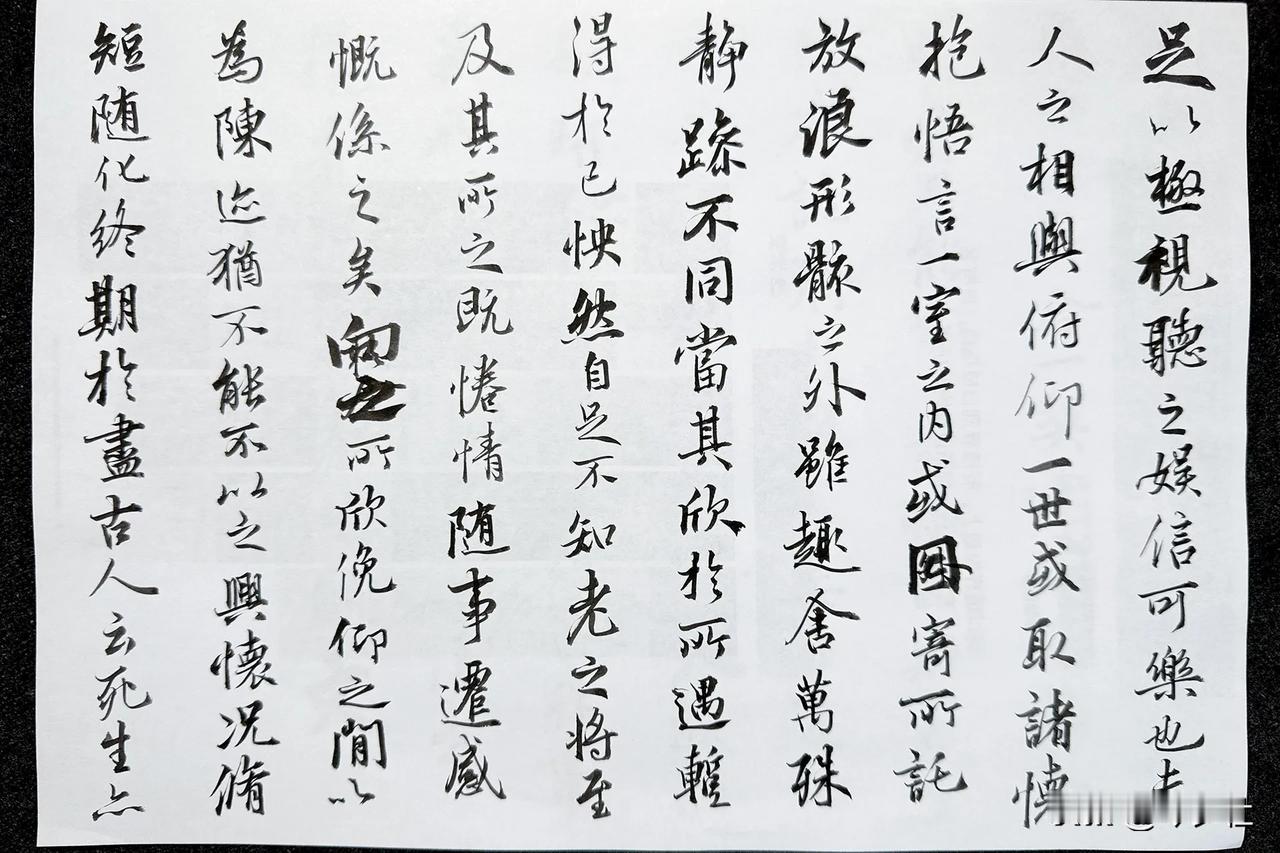 足以極視聽之娛信可樂也夫
人之相與俯仰一世或取諸懷
抱悟言一室之内或因寄所託
放浪形骸之外雖趣舍萬殊
静躁不同當其欣於所遇蹔
得於己怏然自足不知老之將至
及其所之既惓情随事遷感
慨係之矣向之所欣俛仰之閒以
為陳迹猶不能不以之興懷況脩
短随化終期於盡古人云死生亦